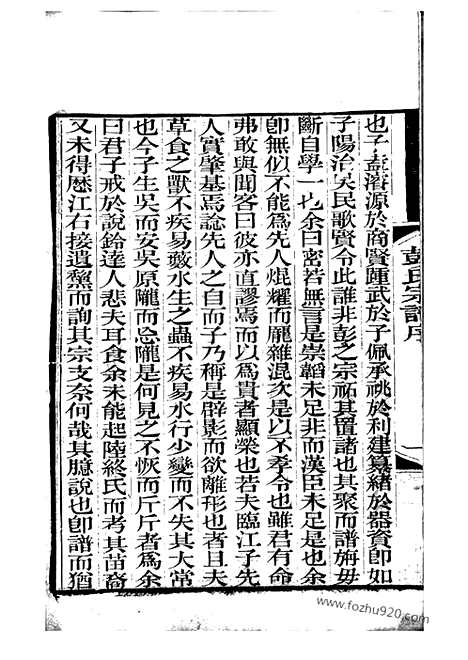 彭氏宗譜序
也子盍濬源於商賢踵武於子佩承祧於利建纂緒於器資卽如
子陽治吳民歌賢令此誰非彭之宗祏其置諸也其聚而譜姆毋
斷自學一也余曰密若無言是崇韜未足非而漢臣未足是也余
卽無似不能爲先人焜耀而厖雜混次是以不孝令也雖君有命
弗敢與聞客曰彼亦直謬焉而以爲貴者顯榮也若夫臨江子先
人實肇基焉諗先人之自而子乃稱是辟影而欲離形也者且夫
草食之獸不疾易藪水生之蟲不疾易水行少變而不失其大常
也今子生吳而安吳原隴而忘隴是何見之不恢而斤斤者爲余
曰君子戒於說鈴達人悲夫耳食余未能起陸終氏而考其苗裔
又未得歷江右接遺黧而詢其宗支奈何哉其臆說也卽譜而猶
www.fozhu920.com